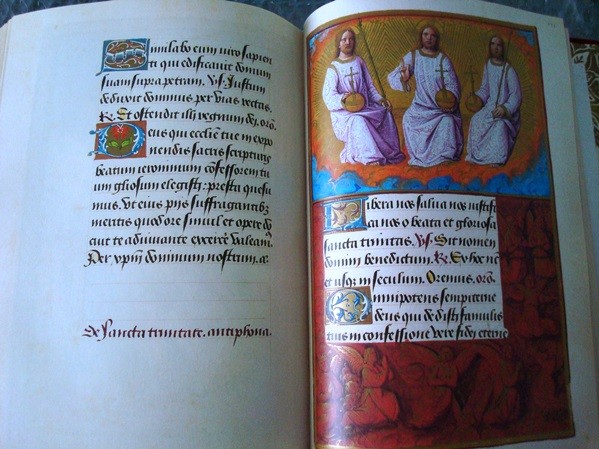 Similabo eum viro sapien
ti qui edificavit domum
suam supra petram. Vs. Justum
deduxit dominus per vias rectas.
Re. Et ostendit illi regnum dei. oro.
Deus qui ecclesie tue in expo
nendis sacris scripturis
beatum ieronimum confessorem tu
um gloriosum elegisti: presta quesu
mus. Ut eius piis suffragantib9
meritis quod ore simul et opere do
cuit te adiuvante exercere valeam.
Per xpm dominum nostrum. ac
de sancta trinitate. antiphona.
Libera nos salva nos iustifi
ca nos o beata et gloriosa
sancta trinitas. Vs. Sit nomen
domini benedictum. Re. Ex hoc nuc
et usq in seculum. Oremus. oro.
Omnipotens sempiterne
deus qui dedisti famulis
tuis in confessione vere fidei eterne